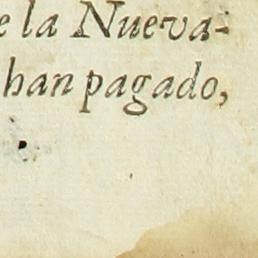 e la Nueva-
han pagado,
.